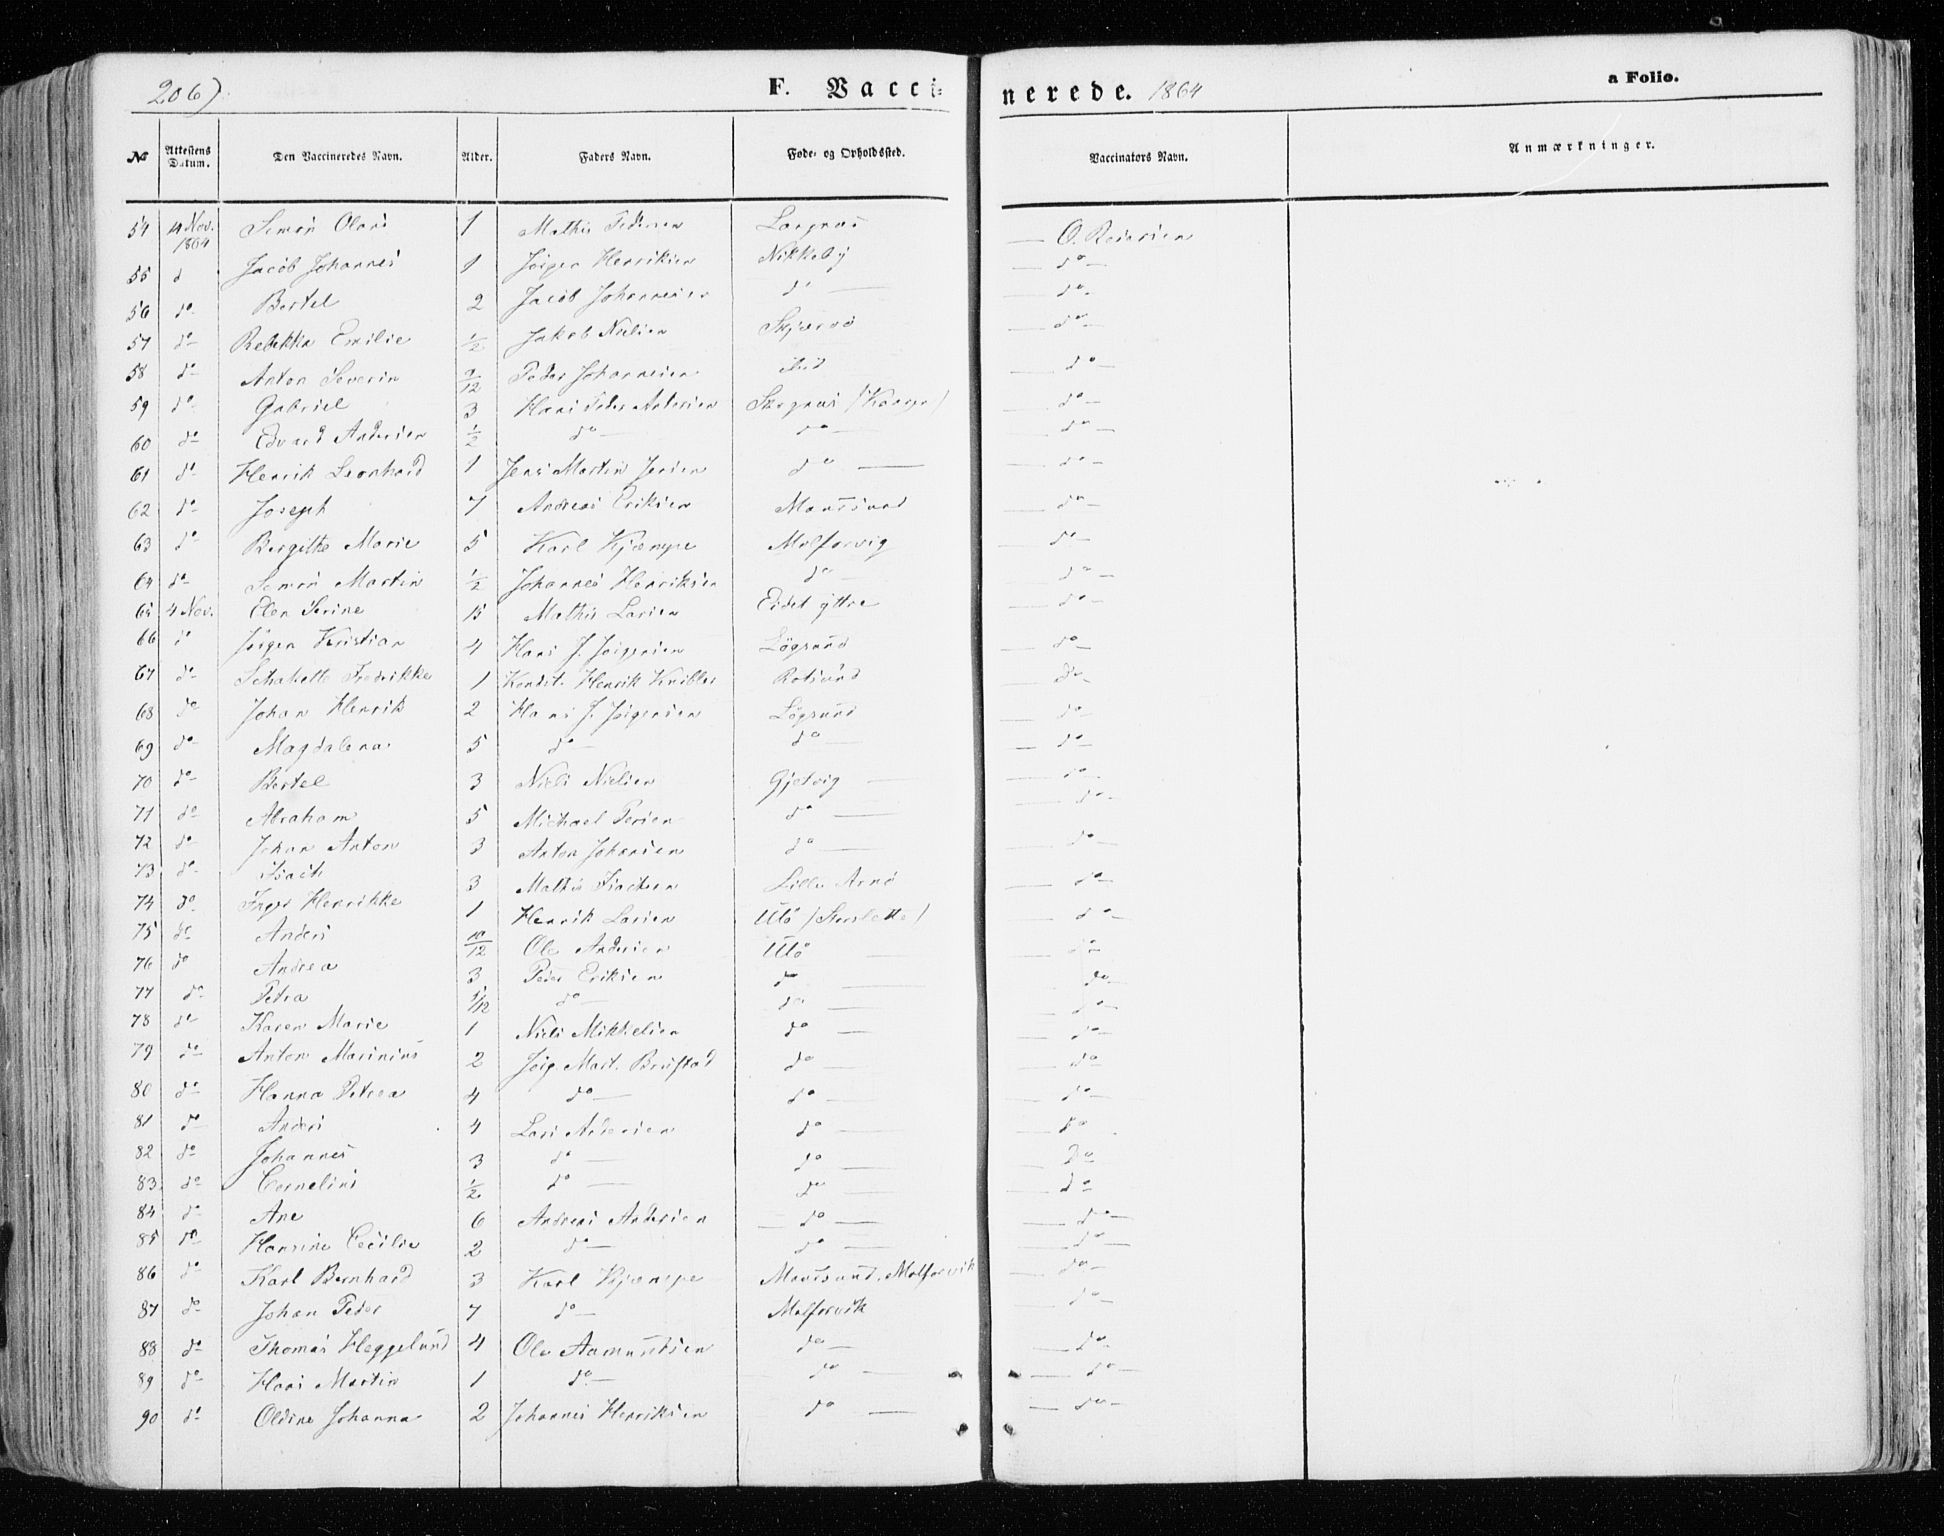 206)
F. Vaccinerede. 1864
a Folio.
№ Attestens Datum. Den Vaccineredes Navn. Alder. Faders Navn. Føde- og Opholdssted. Vaccinators Navn. Anmærkninger.
54 14 Nov. 1864 Simon Olaus 1 Mathis Pedersen — O.
55 d Jacob Johannes 1 Jørgen Henriksen Nikkeby — do —
56 do Bertel 2 Jacob Johannesen do — — do —
57 do Rebekka Emilie 1/2 Jakob Nielsen Skjærvö — do —
58 do Anton Severin 9/12 Peder Johannesen ibid — do —
59 do Gabriel 3 Hans Peder Andersen — do —
60 do Edvard Andersen 1/2 do — do — — do —
61 do Henrik Leonhard 1 Jens Martin Jensen do — — do —
62 do Joseph 7 Andreas Eriksen Maursund — do —
63 do Bergitte Marie 5 Karl Kjæmpe Molforvig — do —
64 do Simon Martin 1/2 Johannes Henriksen do — — do —
65 4 Nov. Elen Serine 15 Mathis Larsen Eidet yttre — do —
66 do Jørgen Kristian 4 Hans J. Jørgensen Lögsund — do —
67 do Fredrikke 1 Kandit. Henrik Rotsund — do —
68 do Johan Henrik 2 Hans J. Jørgensen Lögsund — do —
69 do Magdalena 5 do — do — — do —
70 do Bertel 3 Niels Nielsen Gjøvig — — do —
71 do Abraham 5 Michael Persen do — — do —
72 do Johan Anton 3 Anton Johansen do — — do —
73 do Isach 3 Mathis Isachsen Lille Arnö — do —
74 do Inger Henrikke 1 Henrik Larsen Ulö (Storslette) — do —
75 do Anders 10/12 Ole Andersen Ulö — do —
76 do Andrea 3 Peder Eriksen do — — do —
77 do Petra 1/12 do — do — — do —
78 do Karen Marie 1 Niels Mikkelsen do — — do —
79 do Anton Marinius 2 Jørg. Mart. Brustad do — — do —
80 do Hanna Petrea 4 do — do — — do —
81 do Anders 4 Lars Andersen do — — do
82 do Johannes 3 do — do — — do
83 do Cornelius 1/2 do — do — — do
84 do Ane 6 Andreas Andersen — do — — do —
85 do Hansine Cecilie 2 do — do — — do —
86 do Karl Bernhard 3 Karl Kjæmpe Maursund, Molforvik — do —
87 do Johan Peder 7 do — Molforvik — do —
88 do Thomas Heggelund 4 Ole Aamundsen do — — do —
89 do Hans Martin 1 do — do — — do —
90 do Oldine Johanna 2 Johannes Henriksen do — — do —